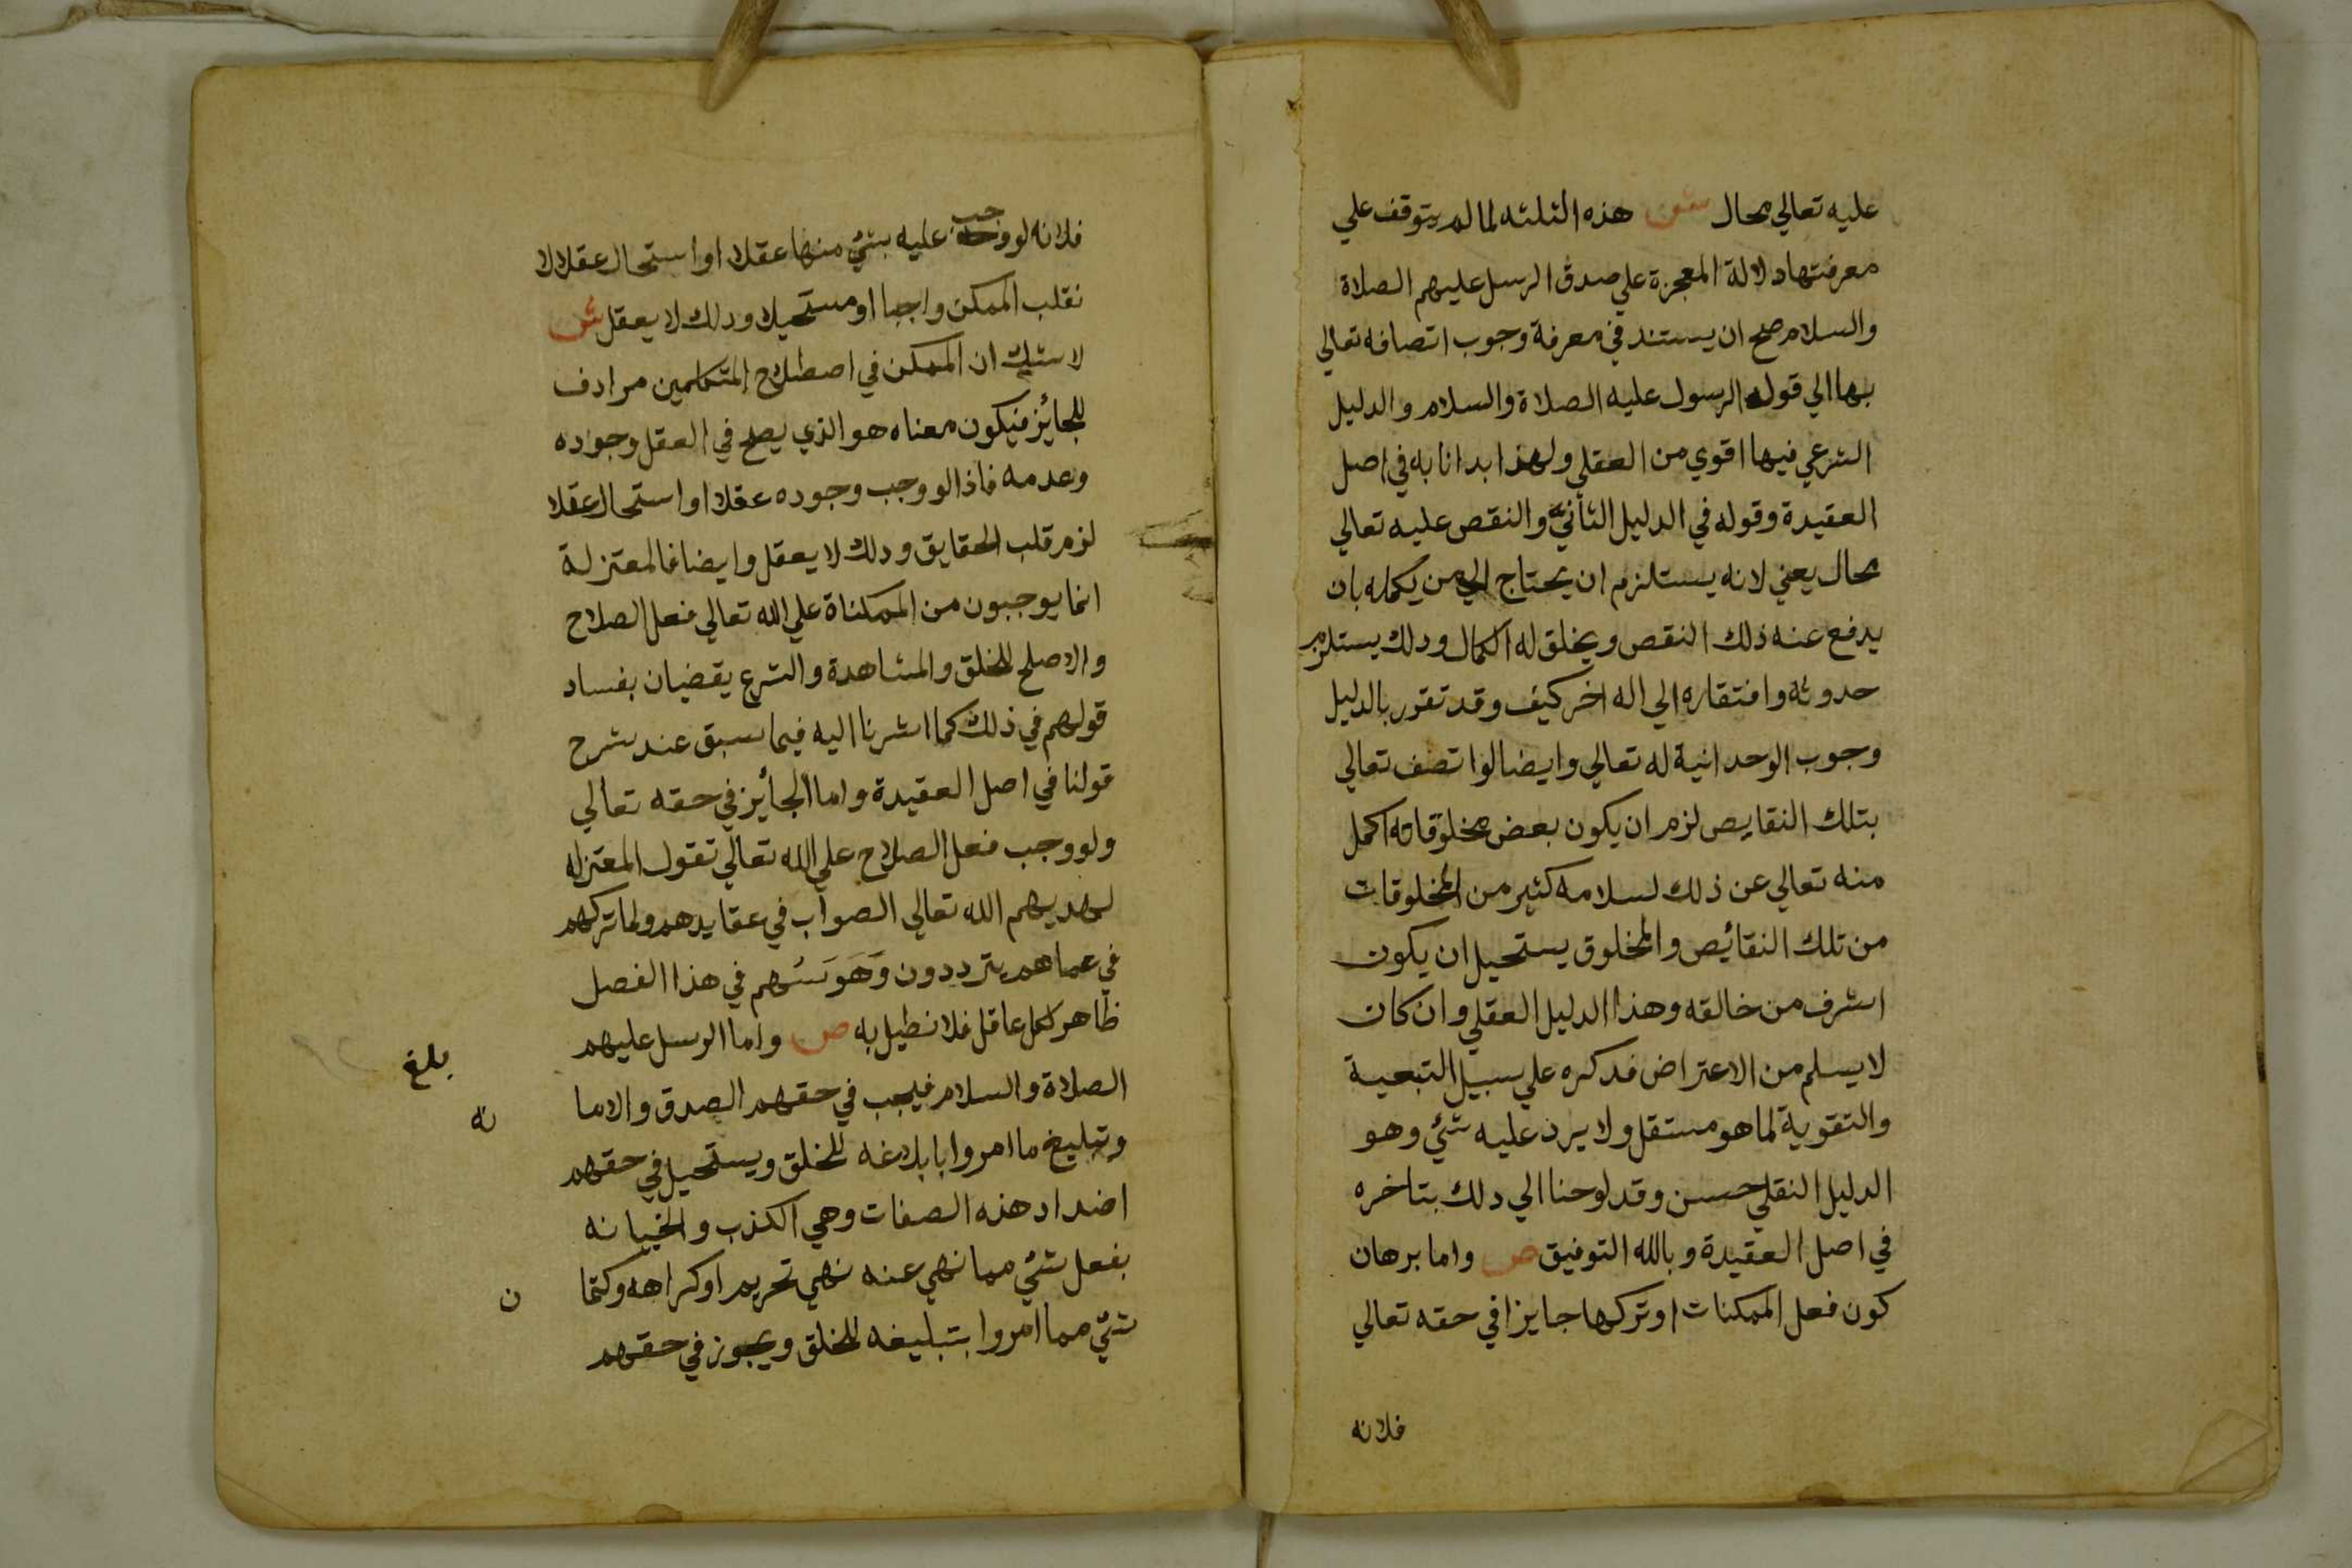 عليه تعالي محال ش هذه الثلثه لما لم يتوقف علي
معرفتها دلالة المعجزة علي صدق الرسل عليهم الصلاة
والسلام صح ان يستند في معرفة وجوب اتصافه تعالي
بها الي قول الرسول عليه الصلاة والسلام والدليل
الشرعي فيها اقوي من العقلي ولهذا بدانا به في اصل
العقيدة وقوله في الدليل الثاني والنقص عليه تعالي
محال يعني لانه يستلزم ان يحتاج الي من يكمله بان
يدفع عنه ذلك النقص ويخلق له الكمال ودلك يستلزم
حدوثه وافتقاره الي اله اخر كيف وقد تقرر بالدليل
وجوب الوحدانية له تعالي وايضا لوا تصف تعالي
بتلك النقايص لزم ان يكون بعض مخلوقاته اكمل
منه تعالي عن ذلك لسلامه كثير من المخلوقات
من تلك النقائص والمخلوق يستحيل ان يكون
اشرف من خالقه وهذا الدليل العقلي وان كان
لا يسلم من الاعتراض فدكره علي سبيل التبعية
والتقوية لما هو مستقل ولا يرد عليه شئ وهو
الدليل النقلي حسن وقد لوحنا الي دلك بتاخره
في اصل العقيدة وبالله التوفيق ص واما برهان
كون فعل الممكنات او تركها جايزا في حقه تعالي
فلانه
فلانه لو وجب عليه بشئ منها عقلا او استحال عقلا لا
نقلب الممكن واجبا او مستحيلا ودلك لا يعقل ش
لا شك ان الممكن في اصطلاح المتكلمين مرادف
للجائز فيكون معناه هو الذي يصح في العقل وجوده
وعدمه فاذا لو وجب وجوده عقلا او استحال عقلا
لزم قلب الحقايق ودلك لا يعقل وايضا فالمعتزلة
انما يوجبون من الممكناة علي الله تعالي فعل الصلاح
والاصلح للخلق والمشاهدة والشرع يقضيان بفساد
قولهم في ذلك كما اشرنا اليه فيما سبق عند شرح
قولنا في اصل العقيدة واما الجائز في حقه تعالي
ولو وجب فعل الصلاح علي الله تعالي تقول المعتزله
لهديهم الله تعالي الصواب في عقايدهم ولما تركهم
في عماهم يترددون وَهَوَسُهم في هذا الفصل
ظاهر لكل عاقل فلا نطيل به ص واما الرسل عليهم
بلغ
الصلاة والسلام فيجب في حقهم الصدق والاما
نه
وتبليغ ما امروا بابلاغه للخلق ويستحيل في حقهم
اضداد هذه الصفات وهي الكذب والخيانه
بفعل شئ مما نهي عنه نهي تحريم او كراهه وكتما
ن
شئ مما امروا بتبليغه للخلق ويجوز في حقهم